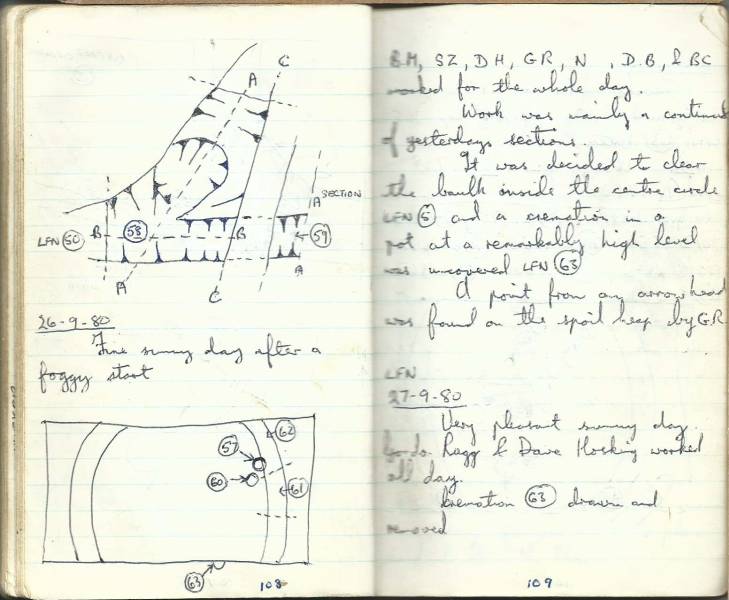 C
A
A
SECTION
LFN 50
B
58
B
59
A
A
C
26-9-80
Fine sunny day after a
foggy start
62
57
60
61
63
108
B.M, SZ, DH, GR, N , D.B, & BC
worked for the whole day.
Work was mainly a continued
of yesterdays sections.
It was decided to clear
the baulk inside the centre circle
LFN 5 and a cremation in a
pot at a remarkably high level
was uncovered LFN 63
A point from an arrowhead
was found on the spoil heap by G.R
LFN
27-9-80
Very pleasant sunny day.
Ragg & Dave Hosking worked
all day.
Cremation 63 drawn and
removed
109